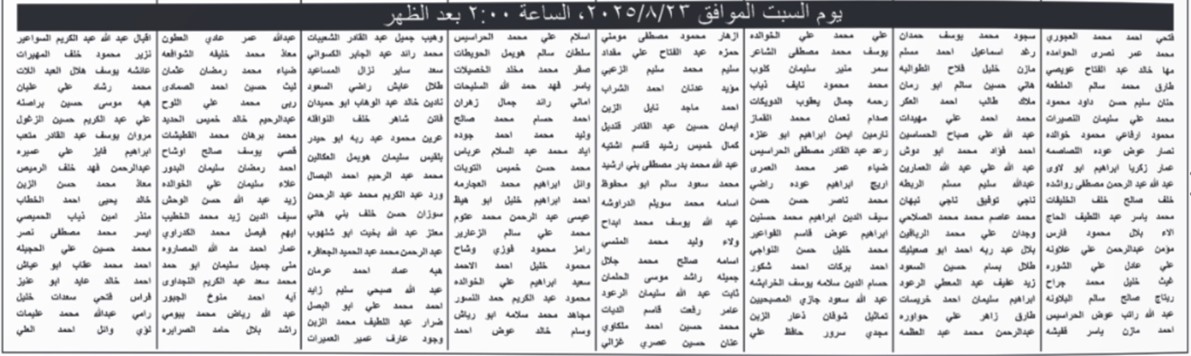 يوم السبت الموافق ٢٠٢٥/٨/٢٣، الساعة ٢:٠٠ بعد الظهر
فتحي احمد محمد العجوري
محمد عمر نصري الحوامده
مها خالد عبد الفتاح عويصي
طارق محمد سالم الملطعه
حنان سليم حسن داود محمود
محمد علي سليمان النصيرات
محمود ارفاعي محمود خوالده
نصار عوض عوده التصاصمه
عمار زكريا ابراهيم ابو لاوي
عبد الله عبد الرحمن مصطفى رواشده
خلف صالح خلف الخليفات
محمد ياسر عبد اللطيف الحاج
الاء بلال محمود فارس
مؤمن عبدالرحمن علي علاونه
علي عادل علي الشوره
غيث خليل محمد جراح
ريتاج صالح سالم البلاونه
عبد الله راتب عوض الحراسيس
احمد مازن ياسر قفيشه
سجود محمد يوسف حمدان
رغد اسماعيل احمد مسلم
مازن خليل فلاح الطوالبه
هاني حسين سالم ابو رمان
ملاك طالب احمد العكر
محمد احمد علي مهيدات
عبد الله علي صباح الحساسين
احمد فؤاد محمد ابو دوش
عبد الله علي عبد الله العمارين
عبدالله سليم مسلم الربطه
تاجي توفيق تاجي نبهان
محمد عاصم محمد محمد الصلاحي
وجدان علي محمد الريافين
بلال عبد ربه احمد ابو صعيليك
طلال بسام حسين السعود
زيد عفيف عبد المعطي الرعود
ابراهيم سليمان احمد خريسات
طارق زاهر علي حواوره
عبدالرحمن محمد عبد العظمه
علي محمد علي الخوالده
يوسف محمد مصطفى الشاعر
سمر منير سليمان كلوب
محمد محمود نايف ذياب
رحمه جمال يعقوب الدويكات
صدام نعمان محمد القماز
نارمين ايمن ابراهيم ابو عنزه
رعد عبد القادر مصطفى الحراسيس
ضياء عمر محمد العمري
اريج ابراهيم عوده راضي
محمد ناصر حسن حسن
سيف الدين ابراهيم محمد حسنين
ابراهيم عوض قاسم القواعير
محمد خليل حسن النواجي
احمد بركات احمد شكور
حسام الدين سلامه يوسف الخرابشه
عبد الله سعود جازي المصبحيين
تماثيل شوقان ذعار الزين
مجدي سرور حافظ علي
ازهار محمود مصطفى مومني
حمزه عبد الفتاح علي مقداد
سليم محمد سليم الزعبي
مؤيد عدنان احمد الشراب
احمد ماجد نايل الزين
ايمان حسين عبد القادر قنديل
كمال خميس رشيد قاسم اشتيه
عبد الله محمد بدر مصطفى بني ارشيد
محمد سعود سالم ابو محفوظ
اسامه محمد سويلم الدراوشه
عبد الله يوسف محمد ابداح
ولاء وليد محمد المنسي
اسامه صالح محمد جلال
جميله راشد موسى الحلمان
ثابت عبد الله سليمان الرعود
عامر رفعت قاسم الديات
محمد حسين احمد ملكاوي
عنان حسين عصري غزالي
اسلام علي محمد الحراسيس
سلطان سالم هويمل الحويطات
صقر محمد مخلد الخصيلات
ياسر فهد حمد الله السليحات
اماني رائد جمال زهران
احمد حسام محمد صالح
وليد محمد احمد جوده
اياد محمد عبد السلام عرباس
محمد حسن خميس التويات
وائل ابراهيم محمد العجارمه
احمد ابراهيم خليل ابو هيظ
عيسى عبد الرحمن محمد عتوم
محمد علي سالم الزعارير
رامز محمود فوزي وشاح
محمود خليل احمد الاحمد
سعيد ابراهيم علي الخوالده
محمود عبد الكريم حمد النسور
مجاهد محمد سلامه ابو رياش
وسام خالد عوض احمد
وهيب جميل عبد القادر الشعيبات
محمد رائد عبد الجابر الكسواني
سعد ساير نزال المساعيد
طلال عايش راضي السعود
نادين خالد عبد الوهاب ابو حميدان
فاتن شاهر خلف النوافله
عرين محمود عبد ربه ابو حيدر
بلقيس سليمان هويمل العكالين
محمد عبد الرحيم احمد البصال
ورد عبد الكريم محمد عبد الرحمن
سوزان حسن خلف بني هاني
معتز عبد الله بخيت ابو شلهوب
عبد الرحمن محمد عبد الحميد الجعافره
هبه عماد احمد عرمان
عبد الله صبحي سليم زايد
احمد محمد علي ابو البصل
ضرار عبد اللطيف محمد الزين
وجود عارف عمير العميرات
عبدالله عمر عادي العطون
معاذ محمد خليفه الشوافعه
ضياء محمد رمضان عثمان
ليث حسين احمد الصمادي
ربى محمد علي اللوح
عبدالرحيم خالد خميس الحديد
محمد برهان محمد القطيشات
قصي يوسف صالح اوشاح
احمد رمضان سليمان البدور
علاء سليمان علي الخوالده
زيد عبد الله حسن الوحش
سيف الدين زيد محمد الخطيب
ايهم فيصل محمد الكدراوي
عمار احمد مد الله المصاروه
منى جميل سليمان ابو حمد
محمد سعد عبد الكريم التجداوي
آيه احمد منوخ الجبور
عبد الله رياض محمد بيومي
راشد بلال حامد الصرايره
اقبال عبد الله عبد الكريم السواعير
نزير محمود خلف المهيرات
عائشه يوسف هلال العبد اللات
محمد رشاد علي عليان
هبه موسى حسين براصنه
علي عبد الكريم حسين الزغول
مروان يوسف عبد القادر متعب
ابراهيم فايز علي عميره
عبدالرحمن فهد خلف الرميص
معاذ محمد حسن الزين
خالد يحيى احمد الخطاب
منذر امين ذياب الحميصي
ايسر محمد مصطفى نصر
محمد حسين علي الحجيله
احمد محمد عقاب ابو عياش
احمد خالد عايد ابو عنيز
فراس فتحي سعدات خليل
رامي عبدالله محمد عليمات
لؤي وائل احمد العلي